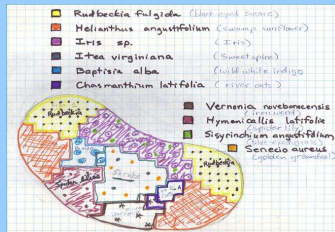 Rudbeckia fulgida (black-eyed susans)
Helianthus angustifolium (swamp sunflower)
Iris sp. (Iris)
Itea virginiana (Sweetspire)
Baptisia alba (wild white indigo
Chasmanthium latifolia (river oats)
Vernonia noveboracensis
(ironweed)
Hymenicallis latifolia
(spider lily)
Sisyrinchium angustifolium
(blue-eyed grass)
Senecio aureus
(golden groundsel)
Rudbeckia
Rudbeckia
Spider lilies